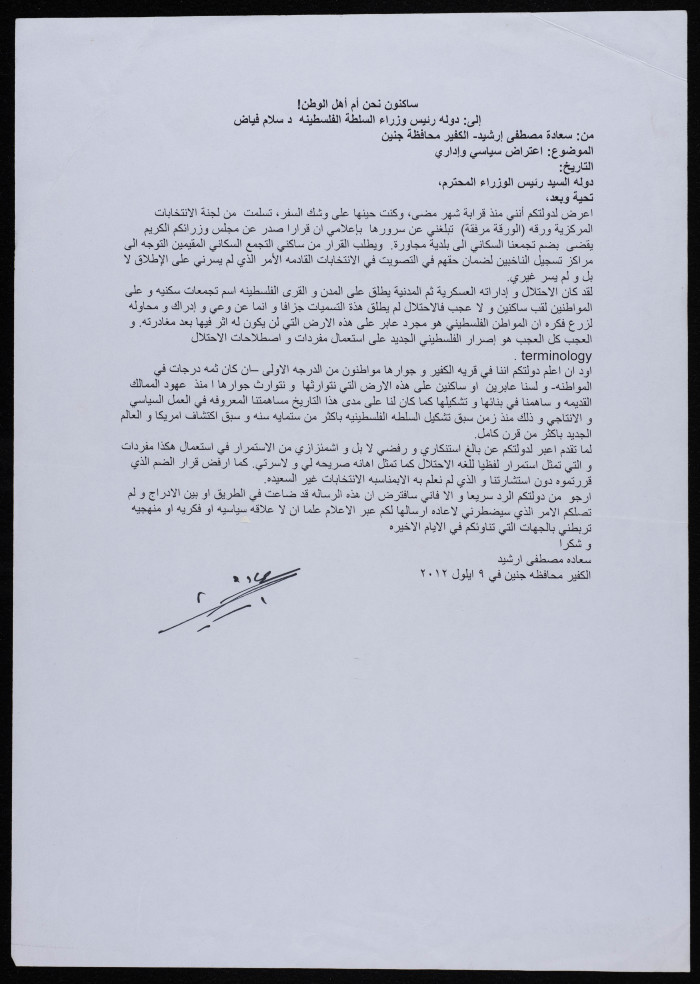 ساكنون نحن أم أهل الوطن!
إلى: دوله رئيس وزراء السلطة الفلسطينه د سلام فياض
من: سعادة مصطفى إرشيد- الكفير محافظة جنين
الموضوع: اعتراض سياسي وإداري
التاريخ:
دوله السيد رئيس الوزراء المحترم،
تحية وبعد،
اعرض لدولتكم أنني منذ قرابة شهر مضى، وكنت حينها على وشك السفر، تسلمت من لجنة الانتخابات
المركزية ورقه (الورقة مرفقة) تبلغني عن سرورها بإعلامي ان قرارا صدر عن مجلس وزرائكم الكريم
يقضى بضم تجمعنا السكاني الى بلدية مجاورة. ويطلب القرار من ساكني التجمع السكاني المقيمين التوجه الى
مراكز تسجيل الناخبين لضمان حقهم في التصويت في الانتخابات القادمه الأمر الذي لم يسرني على الإطلاق لا
بل و لم يسر غيري.
لقد كان الاحتلال و إداراته العسكرية ثم المدنية يطلق على المدن و القرى الفلسطينه اسم تجمعات سكنيه و على
المواطنين لقب ساكنين و لا عجب فالاحتلال لم يطلق هذة التسميات جزافا و انما عن وعي و إدراك و محاوله
لزرع فكره ان المواطن الفلسطيني هو مجرد عابر على هذه الارض التي لن يكون له اثر فيها بعد مغادرته. و
العجب كل العجب هو إصرار الفلسطيني الجديد على استعمال مفردات و اصطلاحات الاحتلال
terminology .
اود ان اعلم دولتكم اننا في قريه الكفير و جوارها مواطنون من الدرجه الاولى –ان كان ثمه درجات في
المواطنه- و لسنا عابرين او ساكنين على هذه الارض التي نتوارثها و نتوارث جوارها ا منذ عهود الممالك
القديمه و ساهمنا في بنائها و تشكيلها كما كان لنا على مدى هذا التاريخ مساهمتنا المعروفه في العمل السياسي
و الانتاجي و ذلك منذ زمن سبق تشكيل السلطه الفلسطينيه باكثر من ستمايه سنه و سبق اكتشاف امريكا و العالم
الجديد باكثر من قرن كامل.
لما تقدم اعبر لدولتكم عن بالغ استنكاري و رفضي لا بل و اشمئزازي من الاستمرار في استعمال هكذا مفردات
و التي تمثل استمرار لفظيا للغه الاحتلال كما تمثل اهانه صريحه لي و لاسرتي. كما ارفض قرار الضم الذي
قررتموه دون استشارتنا و الذي لم نعلم به الابمناسبه الانتخابات غير السعيده.
ارجو من دولتكم الرد سريعا و الا فاني سافترض ان هذه الرساله قد ضاعت في الطريق او بين الادراج و لم
تصلكم الامر الذي سيضطرني لاعاده ارسالها لكم عبر الاعلام علما ان لا علاقه سياسيه او فكريه او منهجيه
تربطني بالجهات التي تناونكم في الايام الاخيره
و شكرا
سعاده مصطفى ارشيد
الكفير محافظه جنين في ٩ ايلول ٢٠١٢